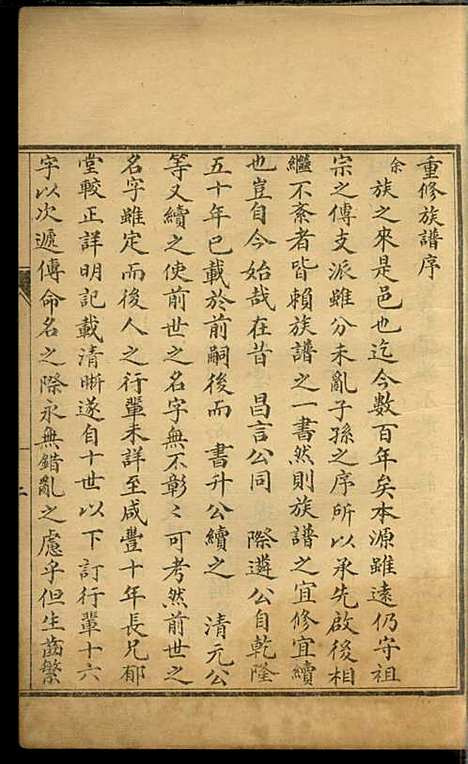 重修族譜序
余族之來是邑也迄今數百年矣本源雖遠仍守祖
宗之傳支派雖分未亂子孫之序所以承先啟後相
繼不紊者皆賴族譜之一書然則族譜之宜修宜續
也豈自今始哉在昔 昌言公同 際遴公自乾隆
五十年已載於前嗣後而 書升公續之 清元公
等又續之使前世之名字無不彰〻可考然前世之
名字雖定而後人之行輩未詳至咸豐十年長兄郁
堂較正詳明記載清晰遂自十世以下訂行輩十六
字以次遞傳命名之際永無錯亂之慮乎但生齒繁